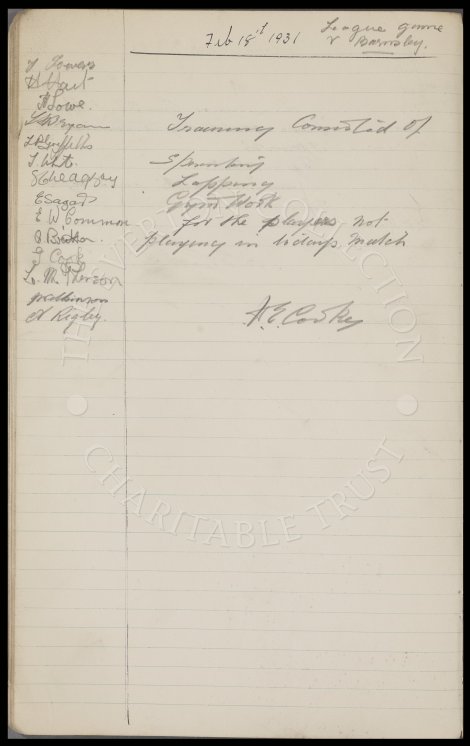 Feb 18st 1931
League game
v Barnsley.
J Towers
H Hart
H Lowe.
T. White
G Cheagray
E Sagar
E W Common
I Cook
L. McPherson
J Wilkinson
A Rigby.
Training Consisted Of
Sprinting
Lapping
Gym Work
for the players not
playing in todays Match
H.E. Cooke
THE EVERTON COLLECTION
CHARITABLE TRUST